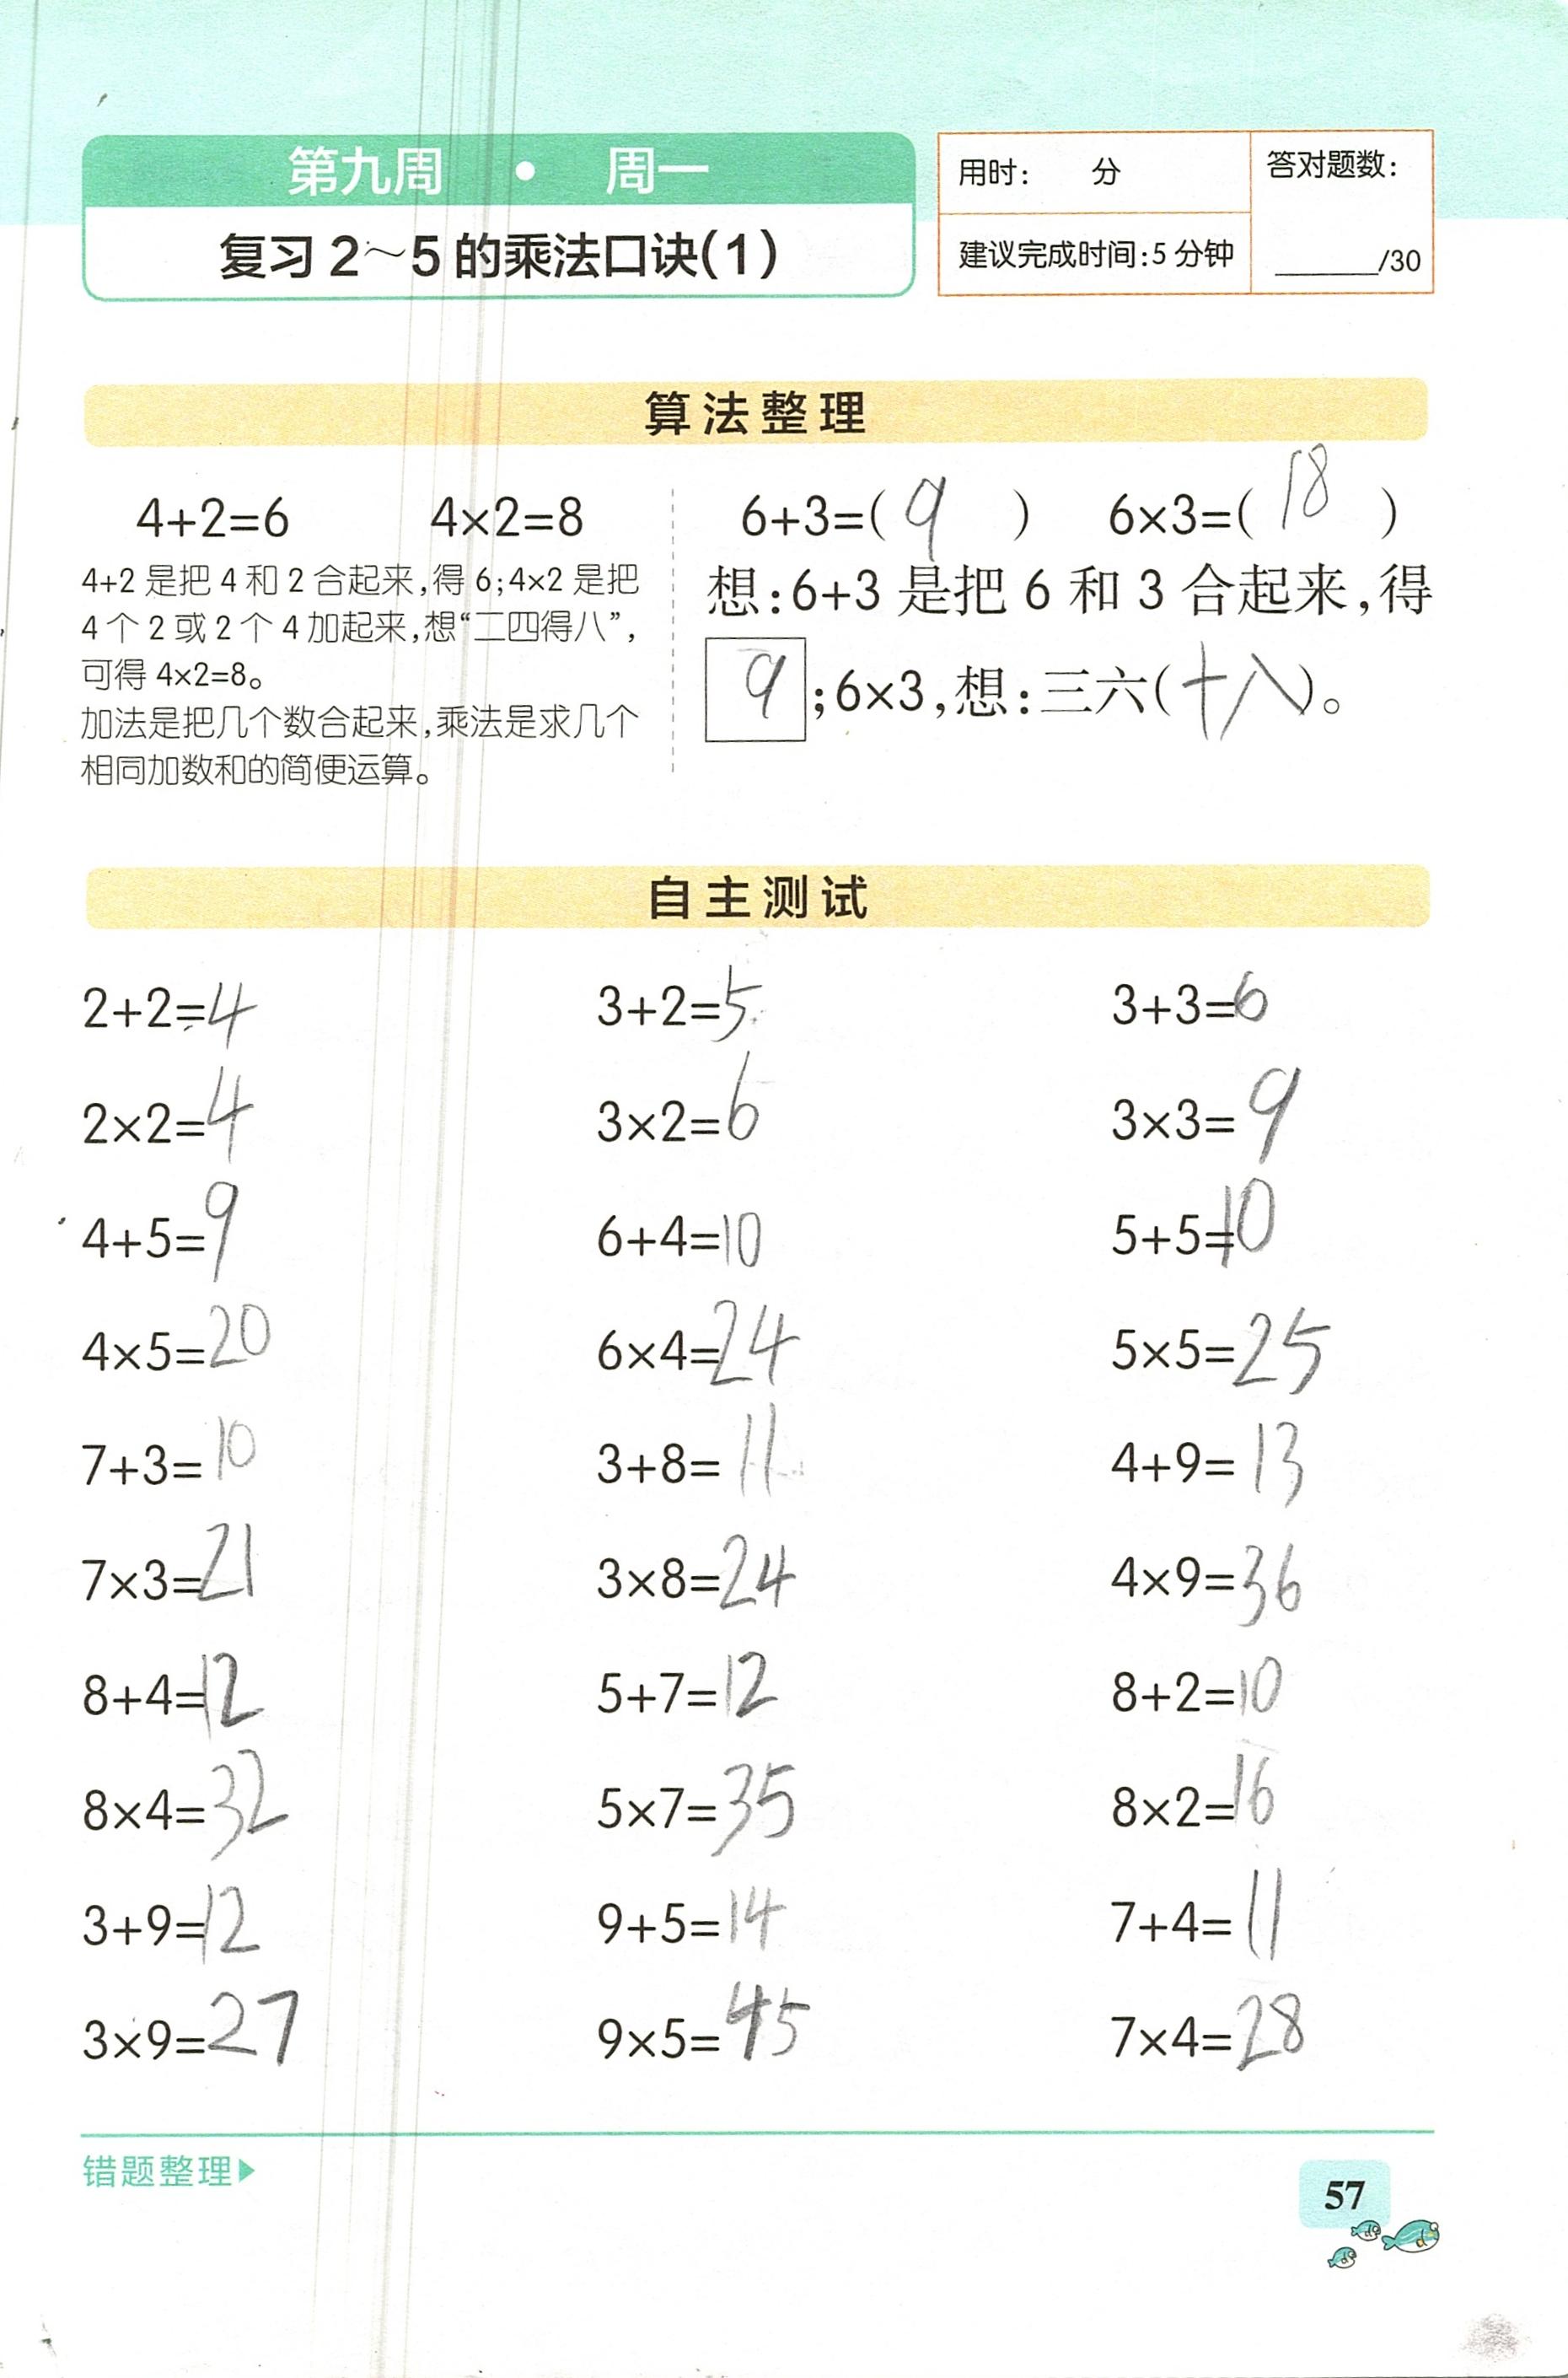 第九周 · 周一
复习2～5的乘法口诀(1)
用时: 分
建议完成时间:5分钟
答对题数:
______/30
算法整理
4+2=6 4×2=8
4+2是把4和2合起来,得6;4×2是把
4个2或2个4加起来,想“二四得八”,
可得4×2=8。
加法是把几个数合起来,乘法是求几个
相同加数和的简便运算。
6+3=(9) 6×3=(18)
想:6+3是把6和3合起来,得
9;6×3,想:三六(十八)。
自主测试
2+2=4 3+2=5 3+3=6
2×2=4 3×2=6 3×3=9
4+5=9 6+4=10 5+5=10
4×5=20 6×4=24 5×5=25
7+3=10 3+8=11 4+9=13
7×3=21 3×8=24 4×9=36
8+4=12 5+7=12 8+2=10
8×4=32 5×7=35 8×2=16
3+9=12 9+5=14 7+4=11
3×9=27 9×5=45 7×4=28
错题整理
57